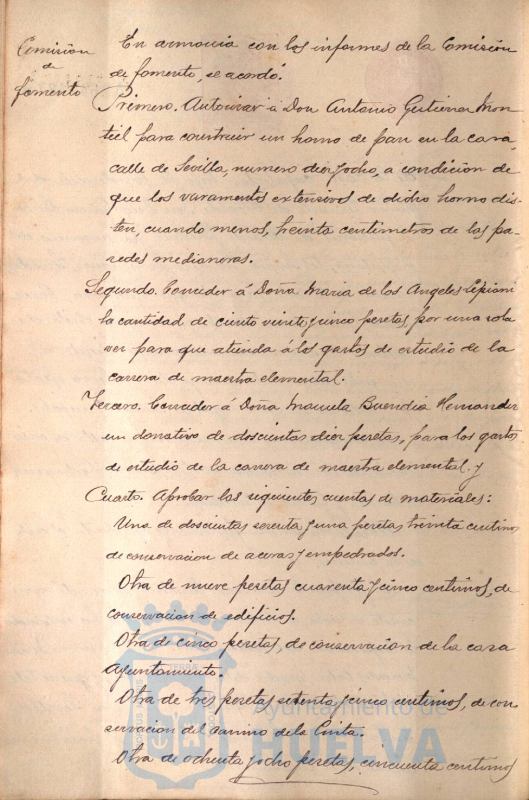 Comisión
de
fomento
En armonia con los informes de la Comisión
de fomento, se acordó.
Primero. Autorizar á Don Antonio Gutierrez Mon
tiel para construir un horno de pan en la casa,
calle de Sevilla, numero diez y ocho, a condicion de
que los paramentos extensivos de dicho horno dis-
ten, cuando menos, treinta centimetros de las pa-
redes medianeras.
Segundo. Conceder á Doña Maria de los Angeles Lepiani
la cantidad de ciento veinte y cinco pesetas, por una sola
vez para que atienda á los gastos de estudio de la
carrera de maestra elemental.
Tercero. Conceder á Doña Manuela Buendia Hernandez
un donativo de doscientas diez pesetas, para los gastos
de estudio de la carrera de maestra elemental. y
Cuarto. Aprobar las siguientes cuentas de materiales:
Una de doscientas sesenta y una pesetas treinta centimos
de conservacion de aceras y empedrados.
Otra de nueve pesetas cuarenta y cinco centimos, de
conservacion de edificios.
Otra de cinco pesetas, de conservacion de la casa
Ayuntamiento.
Otra de tres pesetas setenta y cinco centimos, de con
servacion del camino de la Cinta.
Otra de ochenta y ocho pesetas, cincuenta centimos
Ayuntamiento de
HUELVA